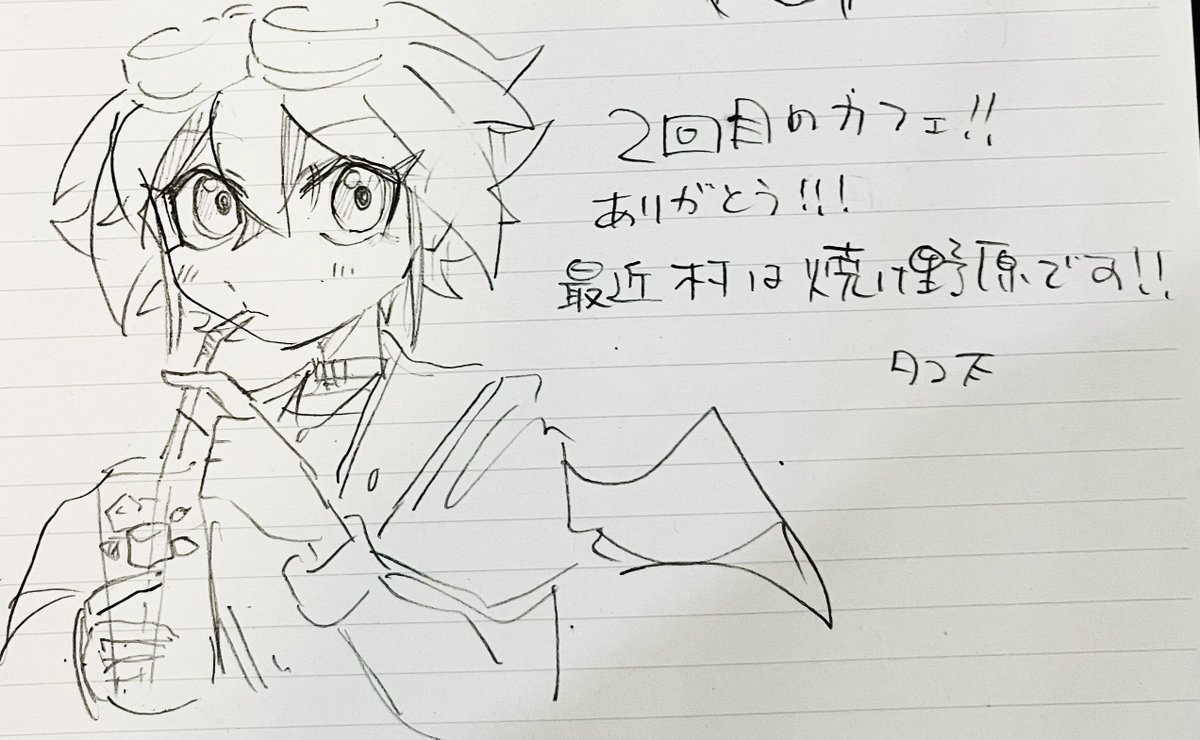 2回目のカフェ!!
ありがとう!!!
最近村は焼け野原です!!